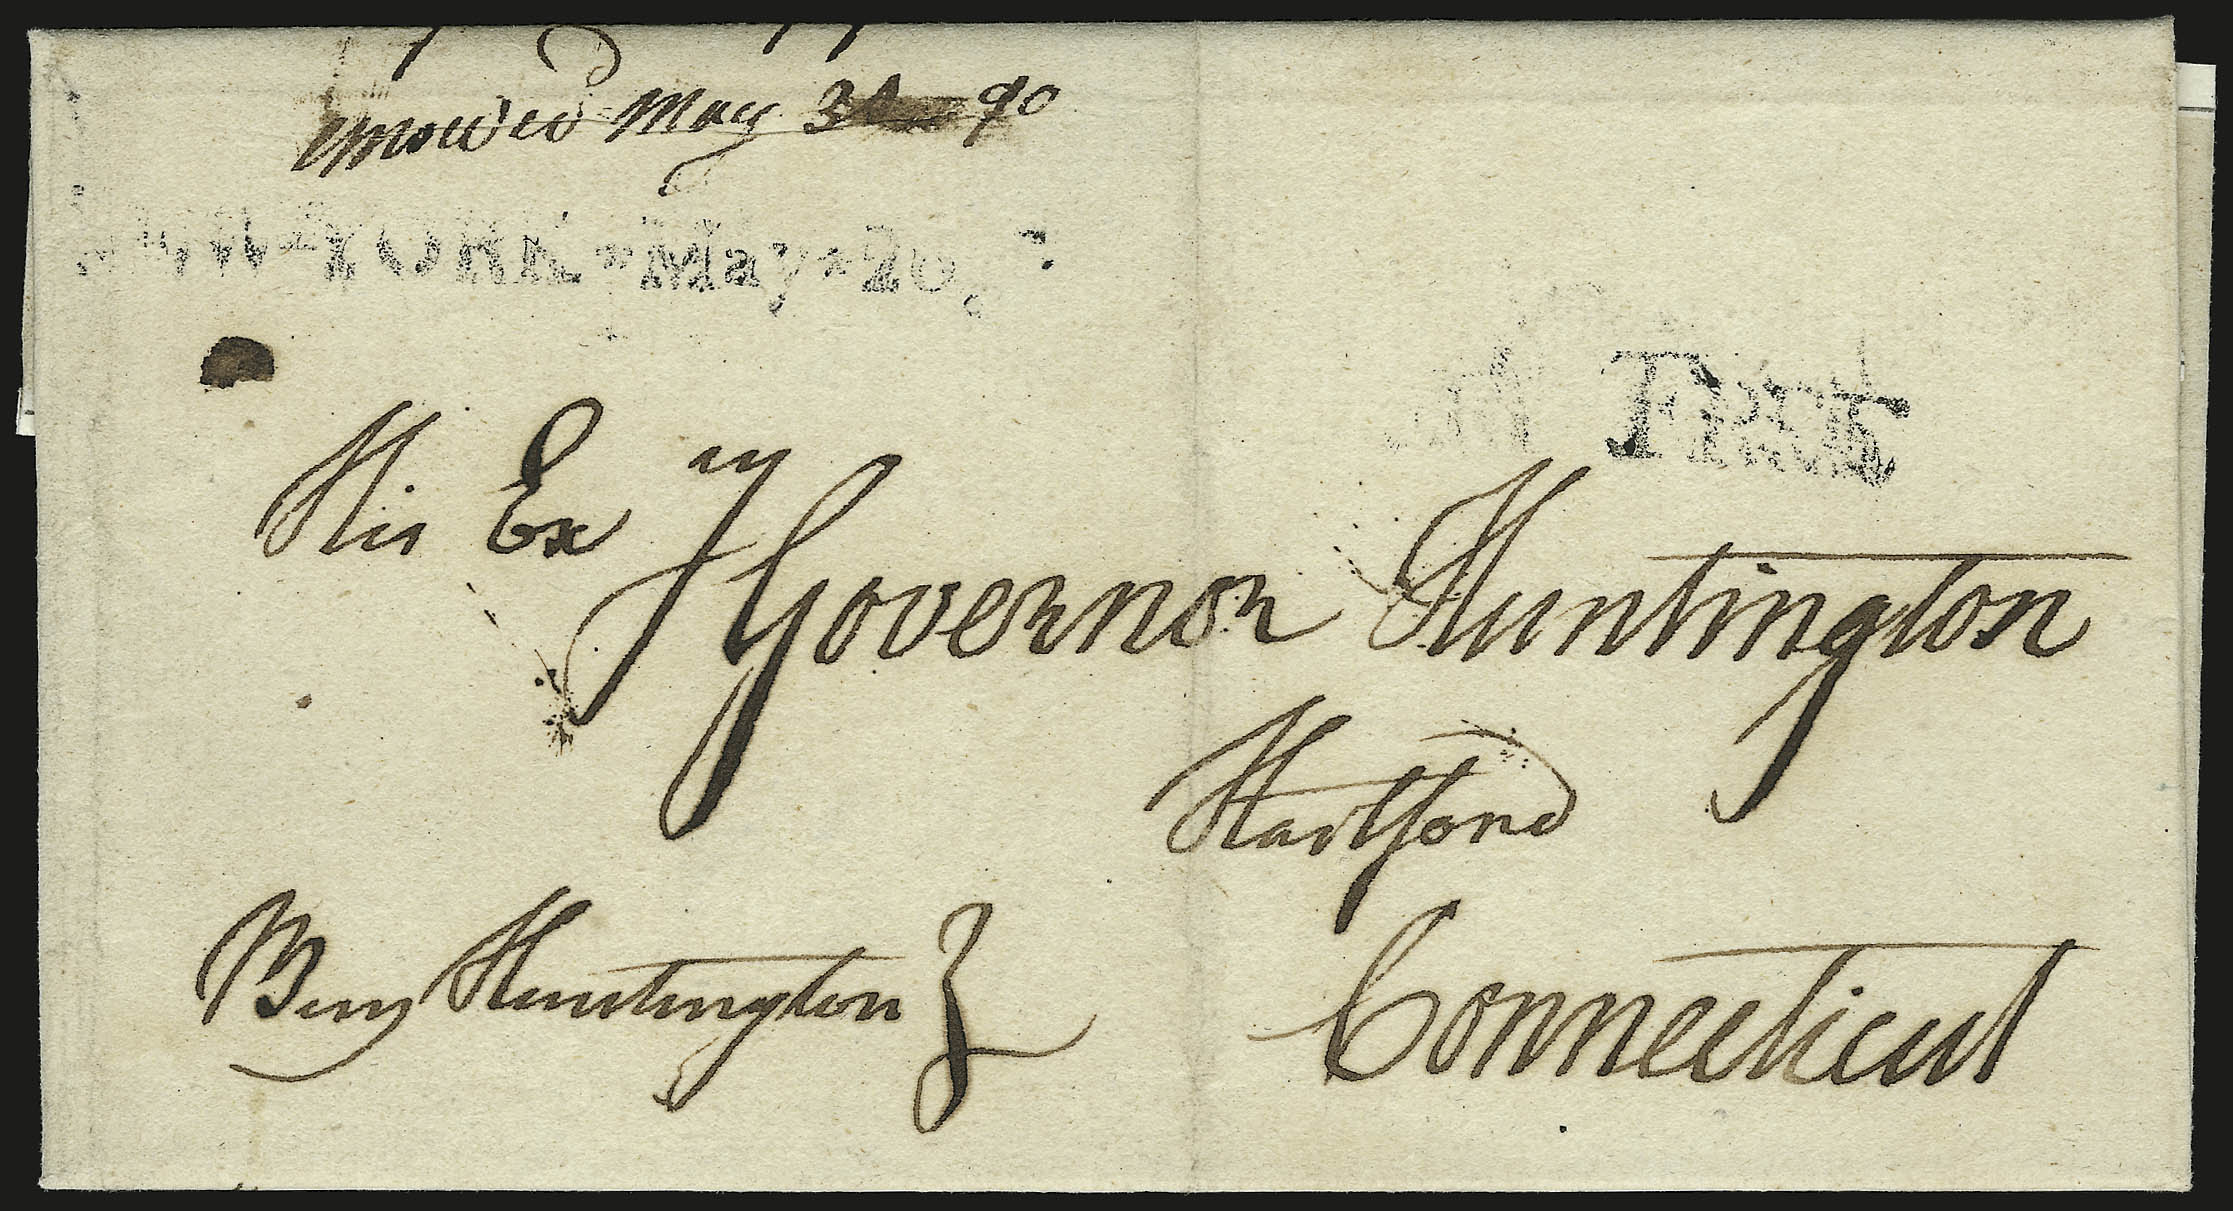 May 3 90
YORK*May*20.
Free
His Exy Governor Huntington
Hartford
Benj Huntington
Connecticut